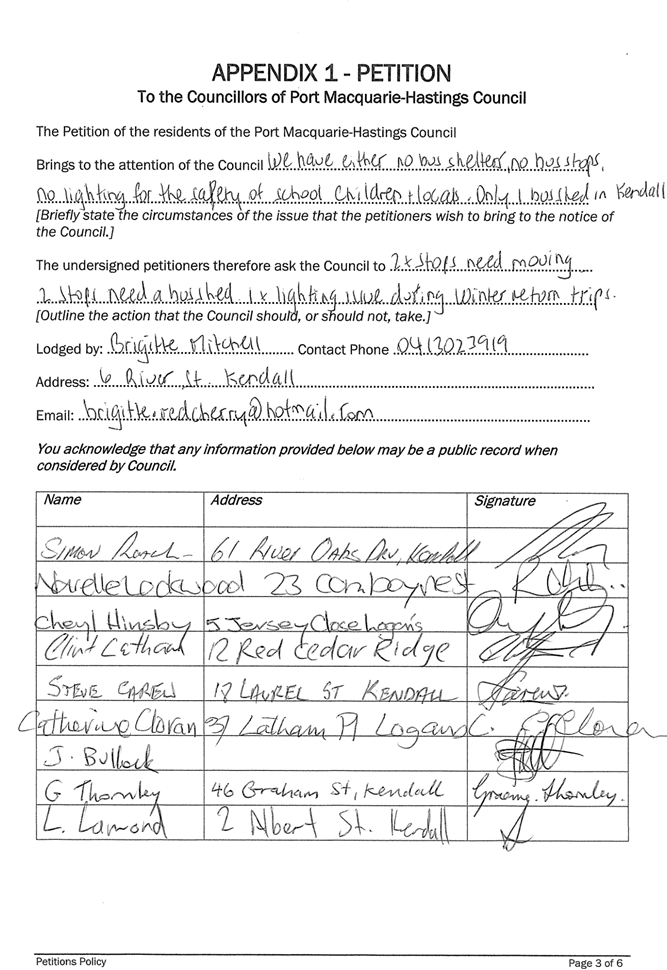 APPENDIX 1 - PETITION
To the Councillors of Port Macquarie-Hastings Council
The Petition of the residents of the Port Macquarie-Hastings Council
Brings to the attention of the Council We have either no bus shelter, no bus stops,
no lighting for the safety of school children + locals. Only 1 busshed in Kendall
[Briefly state the circumstances of the issue that the petitioners wish to bring to the notice of
the Council.]
The undersigned petitioners therefore ask the Council to 2x stops need moving
2 stops need a busshed 1x lighting issue during Winter return trips.
[Outline the action that the Council should, or should not, take.]
Lodged by: Brigitte Mitchell Contact Phone 0413023919
Address: 6 River St. Kendall
Email: brigitte.redcherry@hotmail.com
You acknowledge that any information provided below may be a public record when
considered by Council.
Name Address Signature
Simon 61 River Oaks Drv, Kendall
Norelle Lockwood 23 Comboyne st
Cheryl Hinsby 5 Jersey Close Logans
Clint Latham 12 Red Cedar Ridge
STEVE CAREW 17 LAUREL ST KENDALL
Catherine Cloran 37 Latham Pl Logans C. Cloran
J. Bullock
G Thornley 46 Graham St, Kendall Graeme Thornley.
L. Lamond 2 Albert St. Kendall
Petitions Policy Page 3 of 6